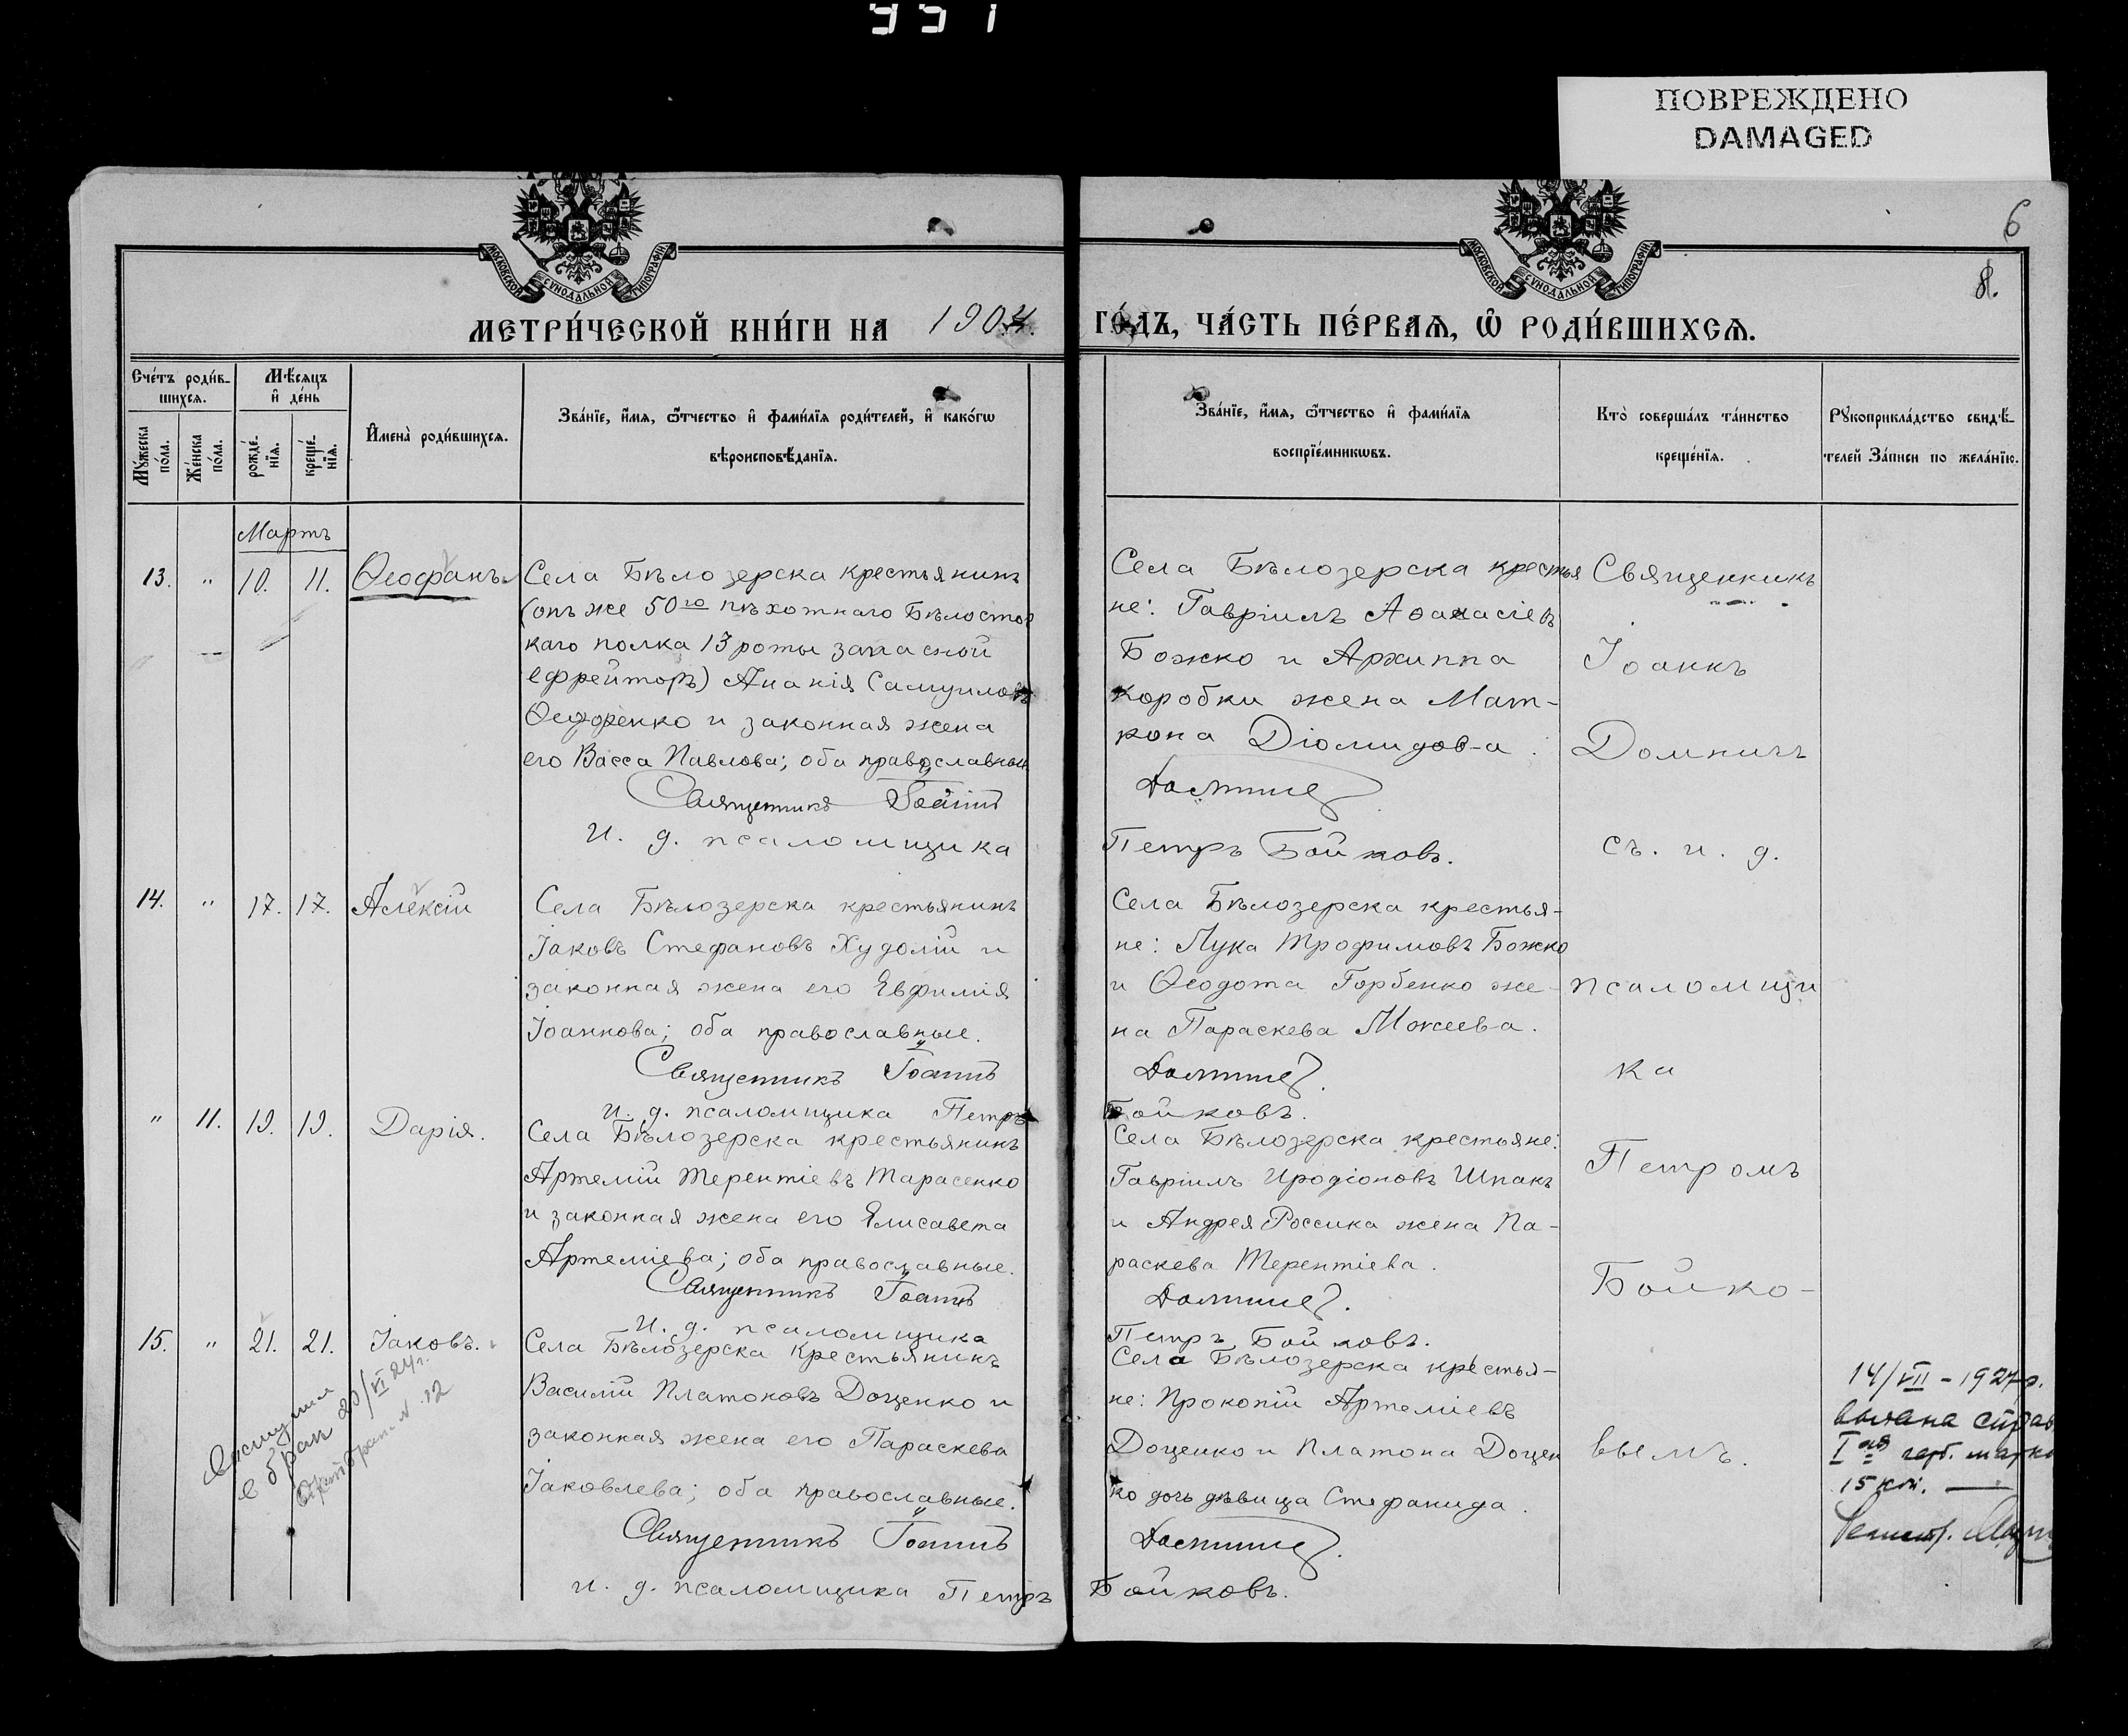 ПОВРЕЖДЕНО
DAMAGED
6
8.
МОСКОВСКОЙ СУНОДАЛЬНОЙ ТИПОГРАФІИ
МОСКОВСКОЙ СУНОДАЛЬНОЙ ТИПОГРАФІИ
МЕТРИ́ЧЕСКОЙ КНИ́ГИ НА 1904.
ГО́ДЪ, ЧА́СТЬ ПЕ́РВАѦ, Ѿ РОДИ́ВШИХСѦ.
Сче́тъ роди́в-
шихсѧ.
Мѣ́сѧцъ
и҆ де́нь
Мꙋ́жеска
по́ла.
Же́нска
по́ла.
рожде́-
нїѧ.
креще́-
нїѧ.
И҆мена̀ роди́вшихсѧ.
Зва́нїе, и҆́мѧ, ѻ҆́тчество и҆ фами́лїѧ роди́телей, и҆ како́гѡ
вѣроисповѣ́данїѧ.
Зва́нїе, и҆́мѧ, ѻ҆́тчество и҆ фами́лїѧ
воспрїе́мникѡвъ.
Кто̀ соверша́лъ та́инство
креще́нїѧ.
Рꙋкоприкла́дство свидѣ́-
телей За́писи по жела́нїю.
Мартъ
13. " 10. 11. Ѳеофанъ.
Села Бѣлозерска крестьянинъ
(онъ же 50го пѣхотнаго Бѣлосток
каго полка 13 роты запасной
ефрейторъ) Ананія Самуиловъ
Ѳедоренко и законная жена
его Васса Павлова; оба православные
Священникъ Іоаннъ
и. д. псаломщика
Села Бѣлозерска крестья
не: Гавріилъ Аѳанасіевъ
Божко и Архиппа
Коробки жена Мат-
рона Діомидова.
Домничъ
Петръ Бойковъ.
14. " 17. 17. Алексій
Села Бѣлозерска крестьянинъ
Іаковъ Стефановъ Худолій и
законная жена его Евфимія
Іоаннова; оба православные.
Священникъ Іоаннъ
и. д. псаломщика Петръ
Села Бѣлозерска крестья-
не: Лука Трофимовъ Божко
и Ѳеодота Горбенко же-
на Параскева Моисеева.
Домничъ.
Бойковъ.
" 11. 19. 19. Дарія.
Села Бѣлозерска крестьянинъ
Артемій Терентіевъ Тарасенко
и законная жена его Елисавета
Артеміева; оба православные.
Священникъ Іоаннъ
и. д. псаломщика
Села Бѣлозерска крестьяне:
Гавріилъ Иродіоновъ Шпакъ
и Андрея Россика жена Па-
раскева Терентіева.
Домничъ.
Петръ Бойковъ.
15. " 21. 21. Іаковъ.
Села Бѣлозерска крестьянинъ
Василій Платоновъ Доценко и
законная жена его Параскева
Іаковлева; оба православные.
Священникъ Іоаннъ
и. д. псаломщика Петръ
Села Бѣлозерска крестья-
не: Прокопій Артеміевъ
Доценко и Платона Доцен
ко дочь дѣвица Стефанида.
Домничъ.
Бойковъ.
Священникъ
Іоаннъ
Домничъ
съ. и. д.
псаломщи
ка
Петромъ
Бойко-
вымъ.
в брак 20/VI 24г.
№ 12
14/VII - 1927р.
15 коп.